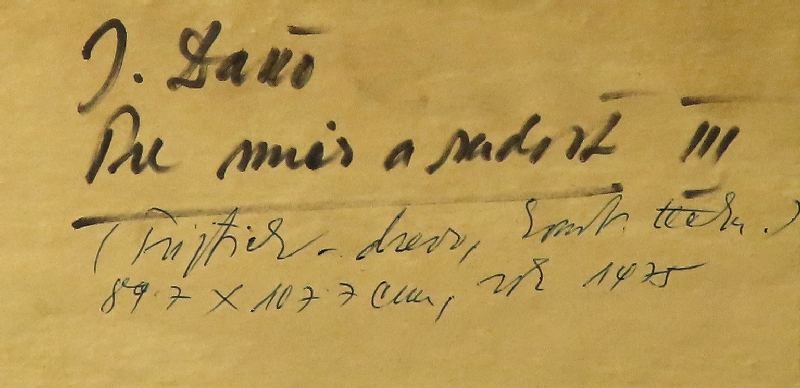 J. Dano
Pre mier a radosť III
(Triptich - drevo, komb. tech.)
89.7 X 107.7 cm, rok 1975